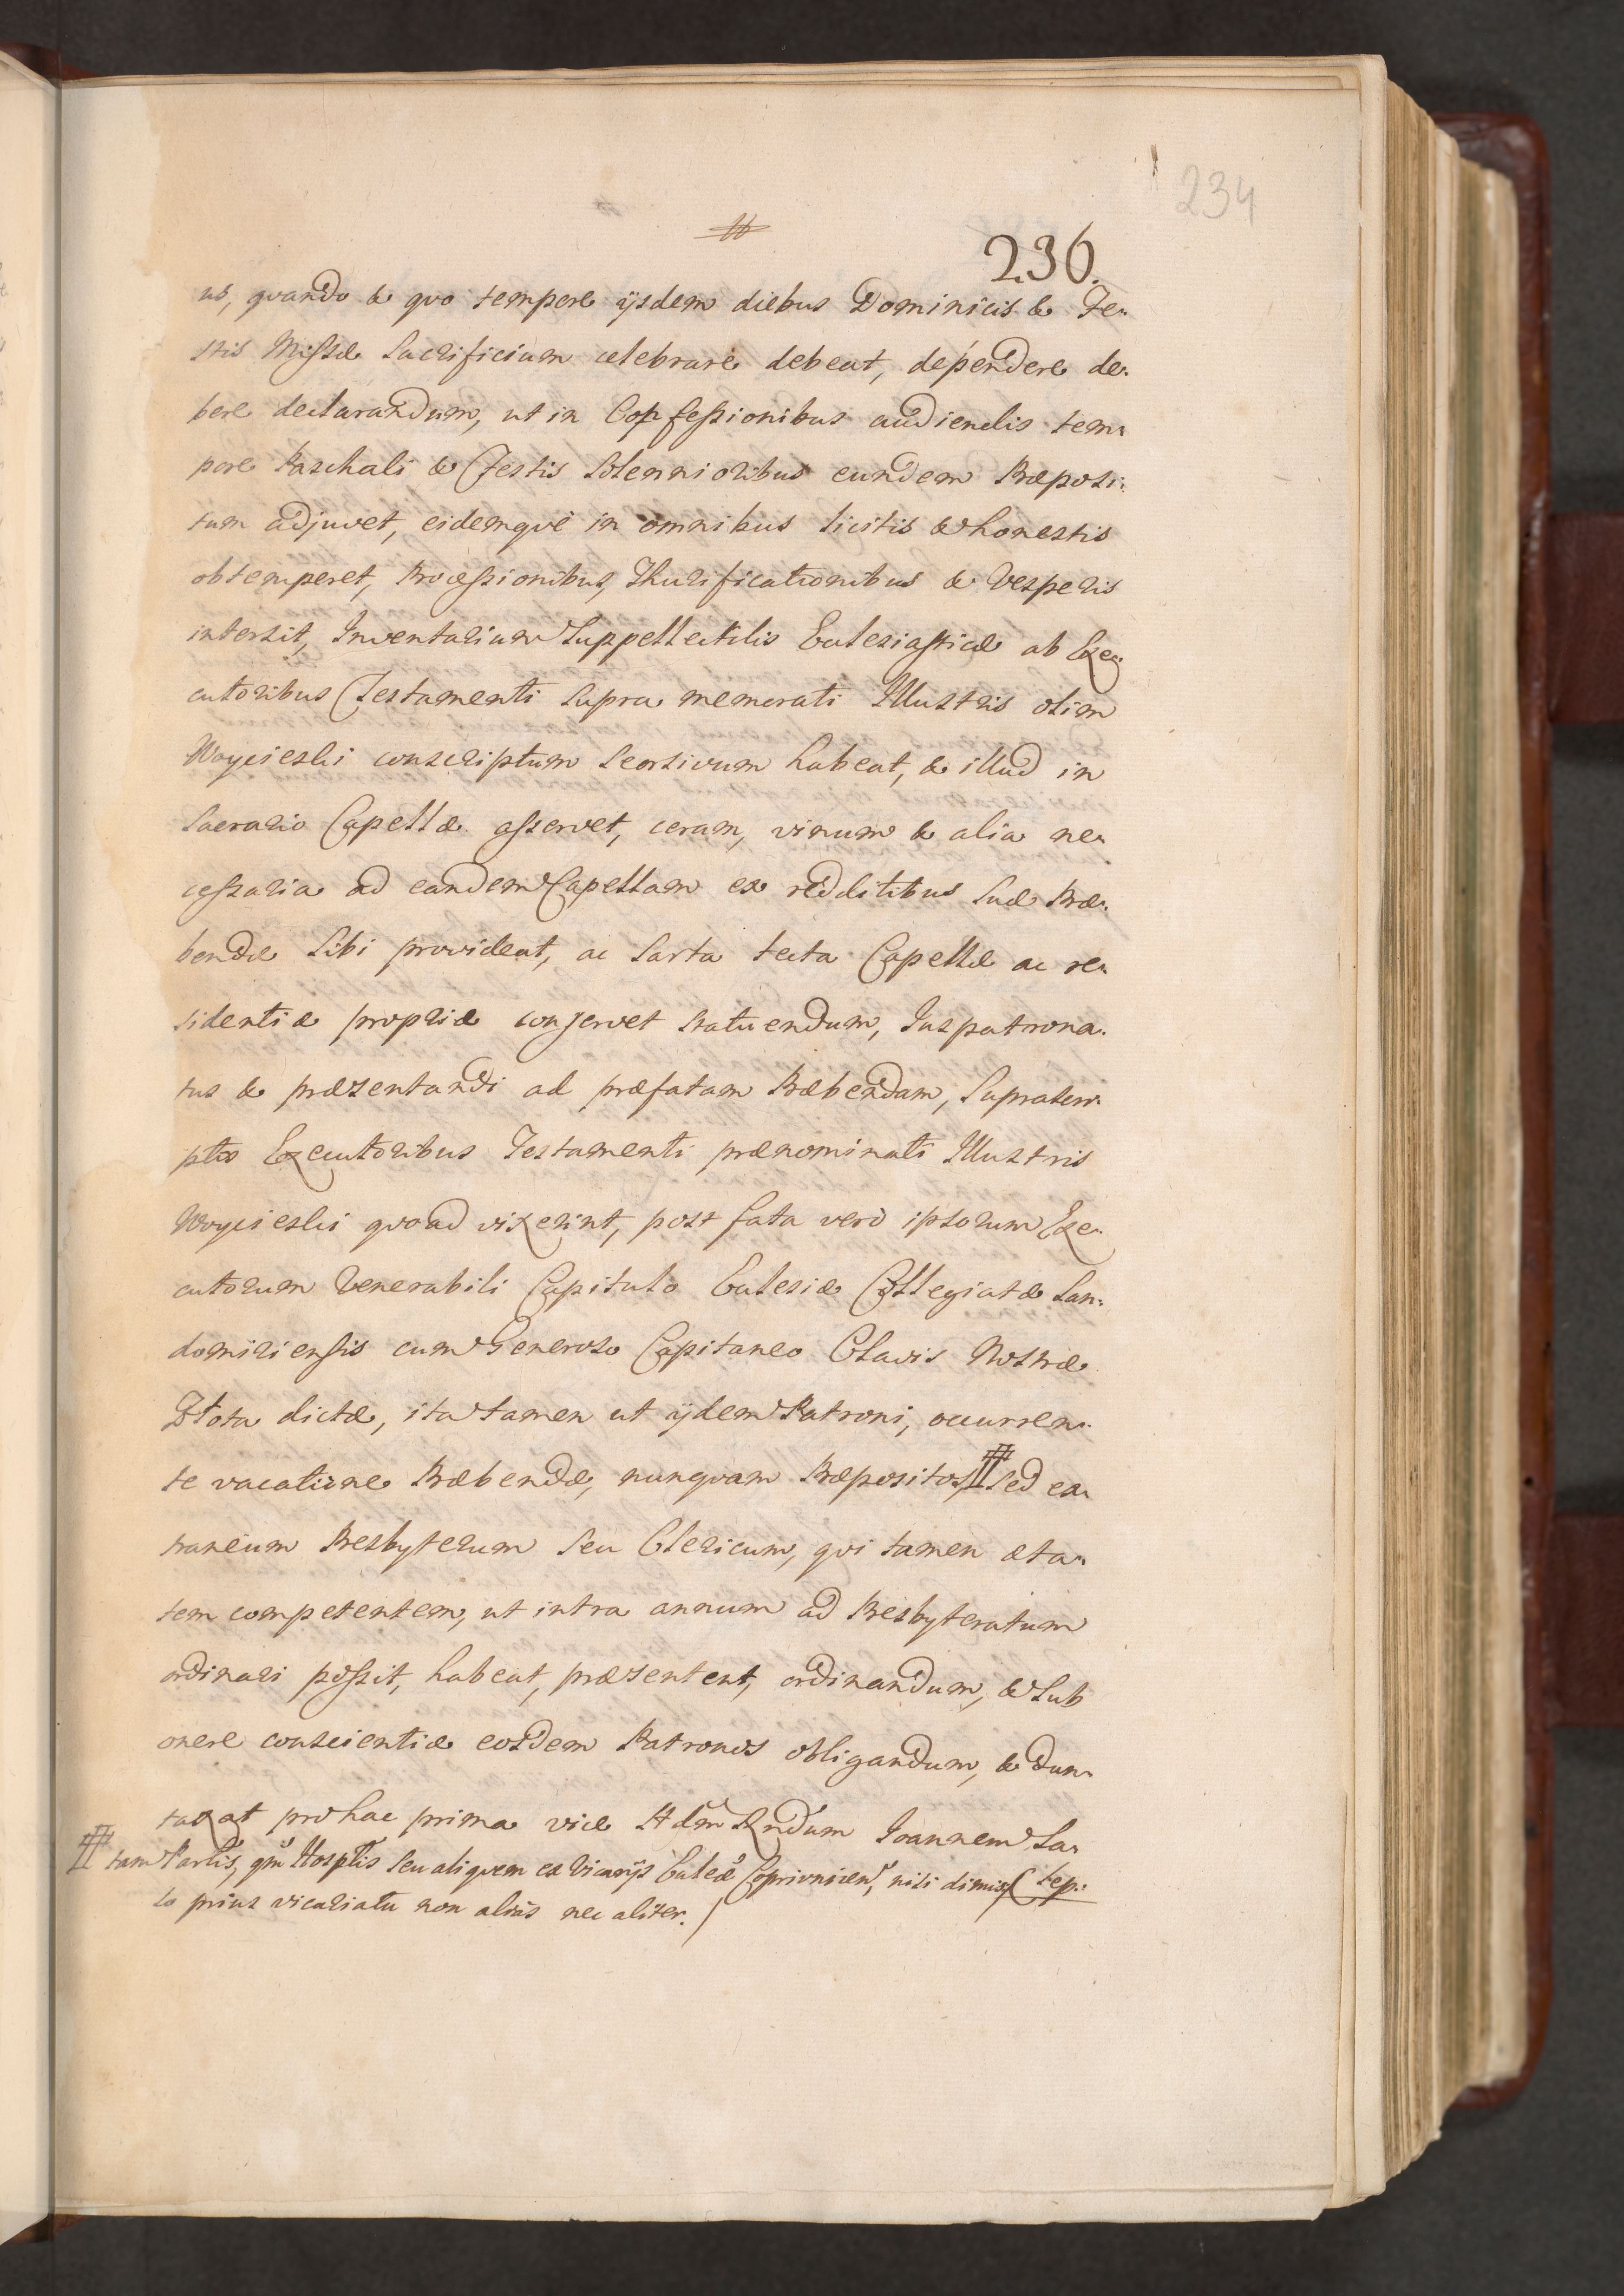 234
236.
us, quando & quo tempore ijsdem diebus Dominicis & Fe-
stis Missæ Sacrificium celebrare debeat, dependere de-
bere declarandum, ut in Confessionibus audiendis tem-
pore Paschali & Festis Solennioribus eundem Præposi-
tum adjuvet, eidemque in omnibus licitis & honestis
obtemperet, Processionibus, Thurificationibus & Vesperis
intersit, Inventarium Suppellectilis Ecclesiasticæ ab Exe-
cutoribus Testamenti supra memorati Illustris olim
Woycieski conscriptum seorsivum habeat, & illud in
Sacrario Capellæ asservet, ceram, vinum & alia ne-
cessaria ad eandem Capellam ex redditibus suæ Præ-
bendæ sibi provideat, ac sarta tecta Capellæ ac re-
sidentiæ propriæ conservet statuendum, Juspatrona-
tus & præsentandi ad præfatam Præbendam, suprascri-
ptis Executoribus Testamenti prænominati Illustris
Woycieski quoad vixerint, post fata verò ipsorum Exe-
cutorum Venerabili Capitulo Ecclesiæ Collegiatæ San-
domiriensis cum Generoso Capitaneo Clavis Nostræ
Złota dictæ, ita tamen ut ijdem Patroni, occurren-
te vacatione Præbendæ, nunquam Præpositos # sed ex-
traneum Presbyterum seu Clericum, qui tamen æta-
tem competentem, ut intra annum ad Presbyteratum
ordinari possit, habeat, præsentent, ordinandum, & sub
onere conscientiæ eosdem Patronos obligandum, & dun-
taxat pro hac prima vice Adm Rndum Joannem La-
# tam Partis, qm Hosptis seu aliquem ex Vicarijs Ecclæ Coprivnicen, nisi dimis-
step.
so prius vicariatu non aliàs nec aliter.